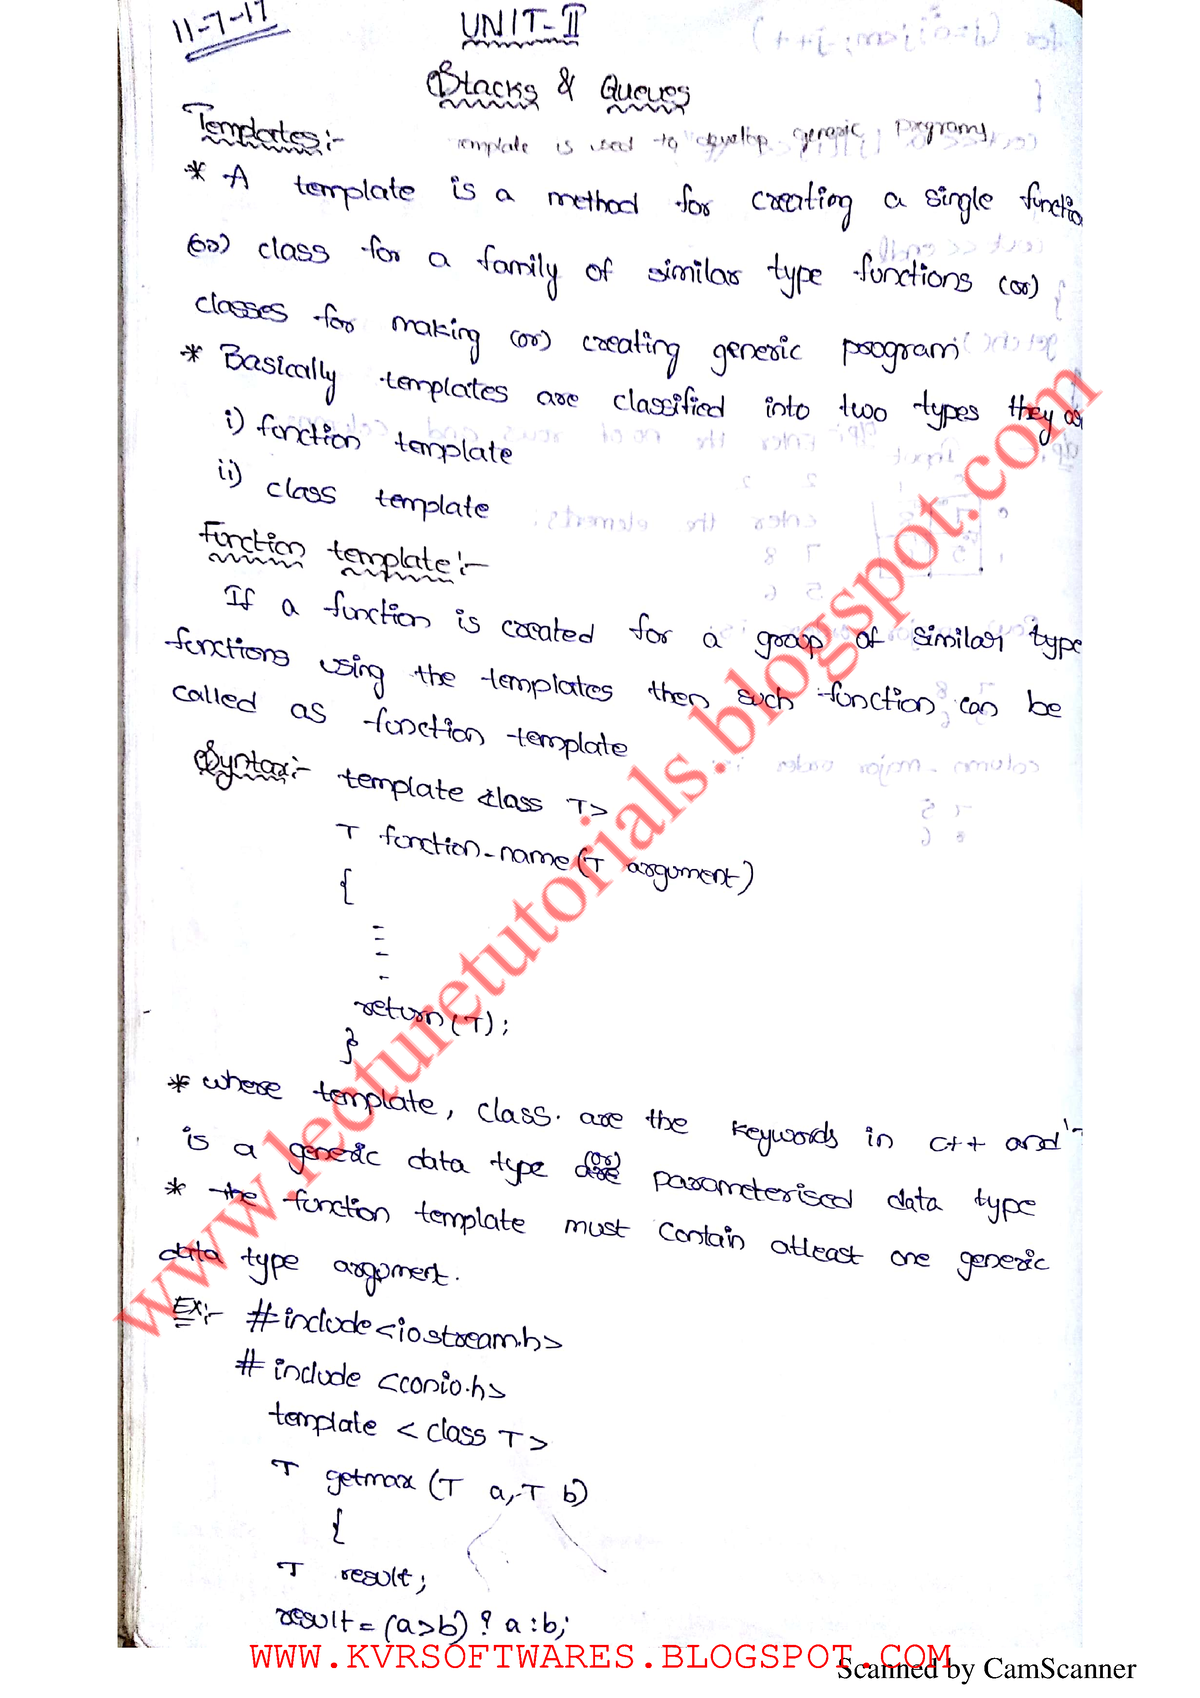 11-7-17
UNIT-II
Stacks & Queues
Templates:-
template is used to develop generic programs
* A template is a method for creating a single functio
(or) class for a family of similar type functions (or)
classes for making (or) creating generic program
* Basically templates are classified into two types they ar
i) function template
ii) class template
Function template:-
If a function is created for a group of similar type
functions using the templates then such function can be
called as function template
Syntax:- template <class T>
T function-name(T argument)
{
-
-
-
-
return(T);
}
* where template, class. are the keywords in c++ and 'T
is a generic data type (or) parameterised data type
* the function template must contain atleast one generic
data type argument.
Ex:- #include<iostream.h>
#include <conio.h>
template < class T>
T getmax (T a, T b)
{
T result;
result = (a>b) ? a : b;
www.lecturetutorials.blogspot.com
WWW.KVRSOFTWARES.BLOGSPOT.COM
Scanned by CamScanner